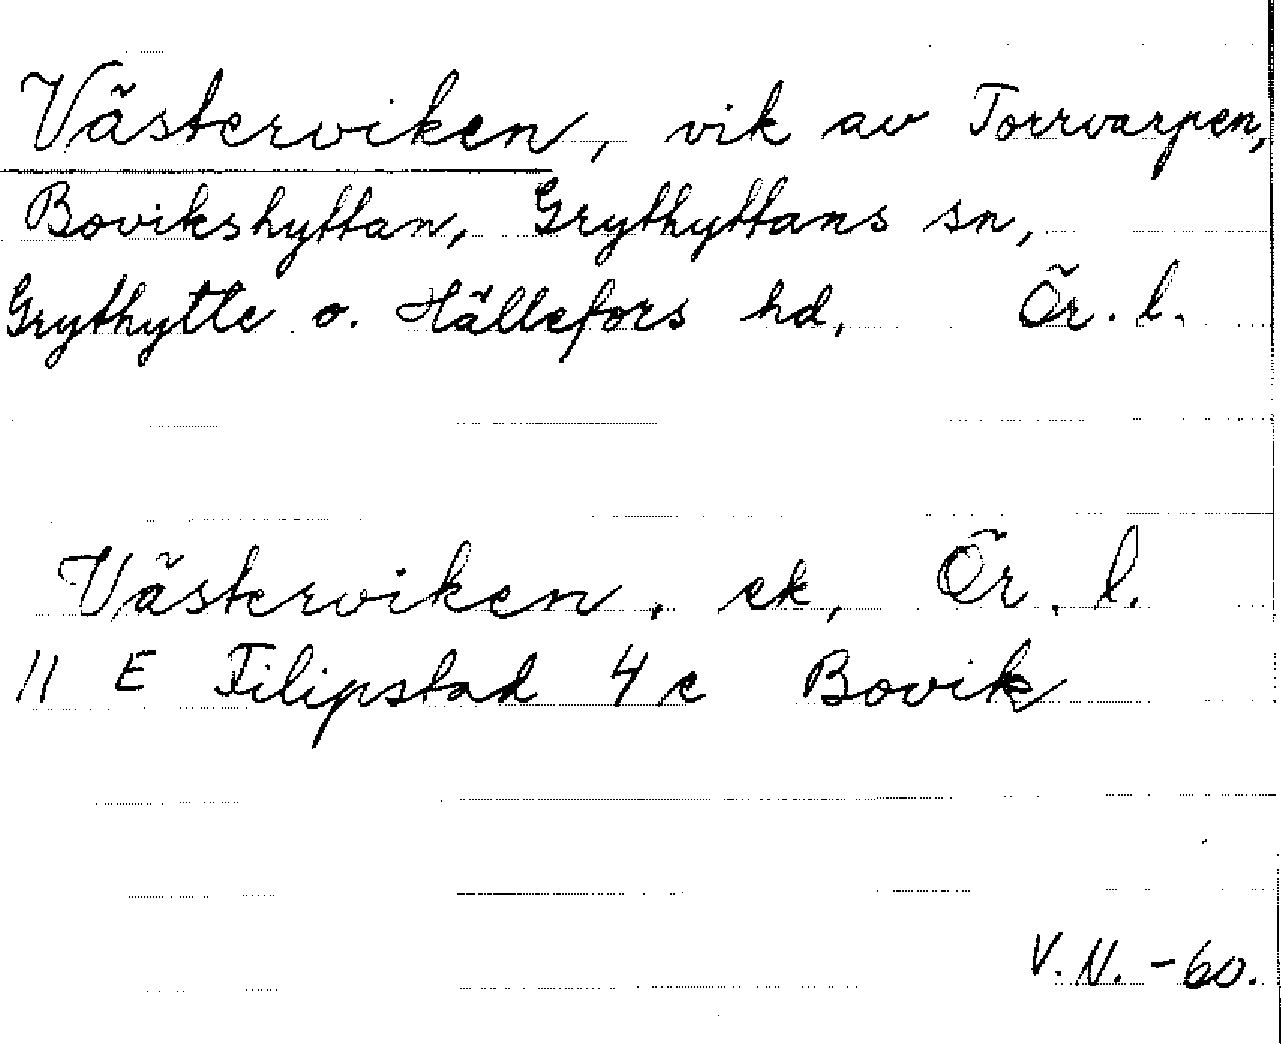 Västerviken, vik av Torrvarpen,
Bovikshyttan, Grythyttans sn,
Grythytte o. Hällefors hd, Ör. l.
Västerviken, ek, Ör. l.
11 E Filipstad 4 c Bovik
V. N. -60.